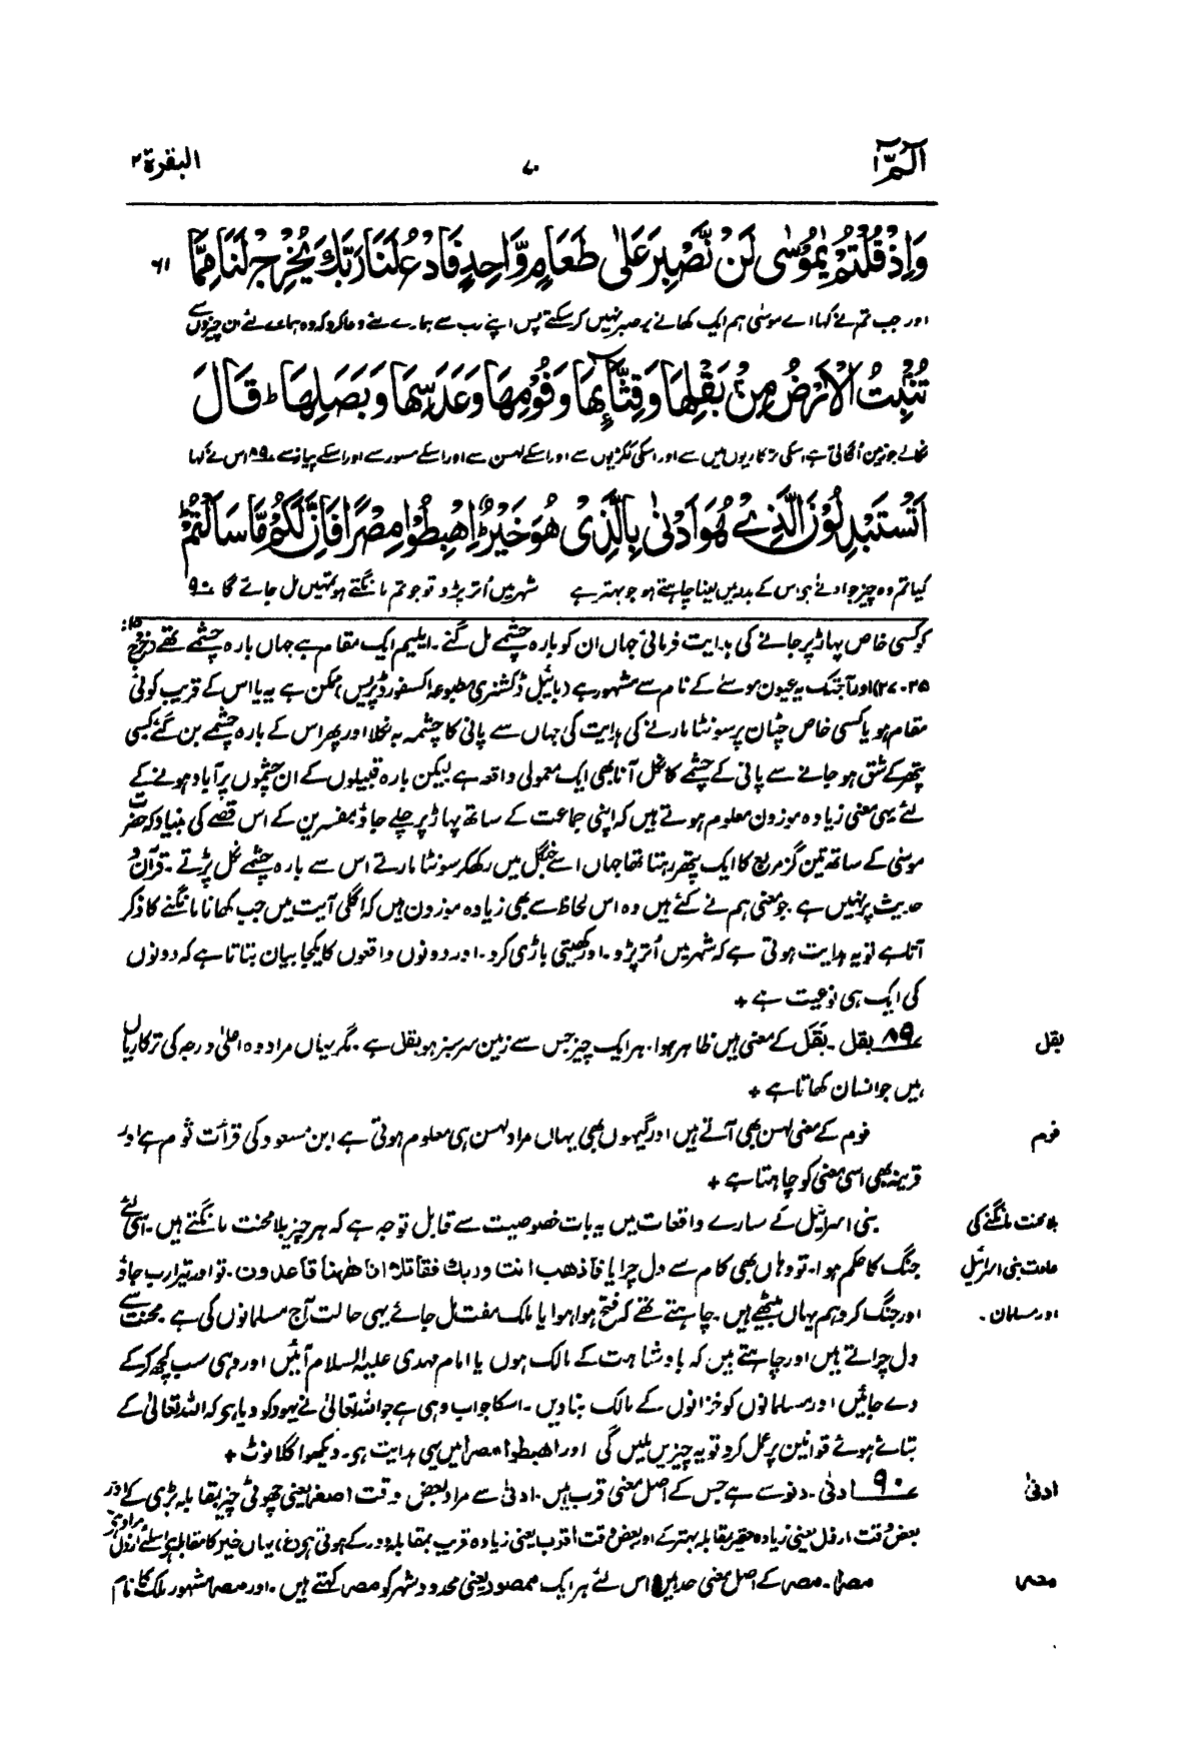 الٓمّٓ ۱ ۷۰ البقرة ۲
وَاِذْ قُلْتُمْ يٰمُوْسٰى لَنْ نَّصْبِرَ عَلٰى طَعَامٍ وَّاحِدٍ فَادْعُ لَنَا رَبَّكَ يُخْرِجْ لَنَا مِمَّا ۶۱
اور جب تم نے کہا اے موسیٰ ہم ایک کھانے پر صبر نہیں کر سکتے پس اپنے رب سے ہمارے لئے دعا کرو کہ وہ ہمارے لئے ان چیزوں سے
تُنْۢبِتُ الْاَرْضُ مِنْۢ بَقْلِهَا وَقِثَّآئِهَا وَفُوْمِهَا وَعَدَسِهَا وَبَصَلِهَا ؕ قَالَ
نکالے جو زمین اُگاتی ہے، اسکی ترکاریوں میں سے اور اسکی ککڑیوں سے اور اسکے لہسن سے اور اسکے مسور سے اور اسکے پیاز سے ۸۹ اس نے کہا
اَتَسْتَبْدِلُوْنَ الَّذِيْ هُوَ اَدْنٰى بِالَّذِيْ هُوَ خَيْرٌ ؕ اِهْبِطُوْا مِصْرًا فَاِنَّ لَكُمْ مَّا سَاَلْتُمْ ؕ
کیا تم وہ چیز جو ادنے ہے اس کے بدلے میں لینا چاہتے ہو جو بہتر ہے شہر میں اُتر پڑو تو جو تم مانگتے ہو تمہیں مل جائے گا ۹۰
کو کسی خاص پہاڑ پر جانے کی ہدایت فرمائی جہاں ان کو بارہ چشمے مل گئے۔ ایلیم ایک مقام ہے جہاں بارہ چشمے تھے (خروج ۱۵:
۲۷۔۲۵) اور آجتک یہ عیون موسےٰ کے نام سے مشہور ہے (بائیبل ڈکشنری مطبوعہ اکسفورڈ پریس) ممکن ہے یہ یا اس کے قریب کوئی
مقام ہو یا کسی خاص چٹان پر سونٹا مارنے کی ہدایت کی جہاں سے پانی کا چشمہ بہ نکلا اور پھر اس کے بارہ چشمے بن گئے کسی
پتھر کے شق ہو جانے سے پانی کے چشمے کا نکل آنا بھی ایک معمولی واقعہ ہے لیکن بارہ قبیلوں کے ان چشموں پر آباد ہونے کے
لئے یہی معنی زیادہ موزون معلوم ہوتے ہیں کہ اپنی جماعت کے ساتھ پہاڑ پر چلے جاؤ مفسرین کے اس قصے کی بنیاد کہ حضرت
موسٰی کے ساتھ تین گز مربع کا ایک پتھر رہتا تھا جہاں اسے جنگل میں رکھکر سونٹا مارتے اس سے بارہ چشمے نکل پڑتے۔ قرآن و
حدیث پر نہیں ہے جو معنی ہم نے کئے ہیں وہ اس لحاظ سے بھی زیادہ موزون ہیں کہ اگلی آیت میں جب کھانا مانگنے کا ذکر
آتا ہے تو یہ ہدایت ہوتی ہے کہ شہر میں اُتر پڑو۔ اور کھیتی باڑی کرو۔ اور دونوں واقعوں کا یکجا بیان بتاتا ہے کہ دونوں
کی ایک ہی نوعیت ہے +
بقل ۸۹ بقل۔ بَقَل کے معنی ہیں ظاہر ہوا۔ ہر ایک چیز جس سے زمین سرسبز ہو بقل ہے۔ مگر یہاں مراد وہ اعلیٰ درجہ کی ترکاریاں
ہیں جو انسان کھاتا ہے +
فوم فوم کے معنی لہسن بھی آتے ہیں اور گیہوں بھی یہاں مراد لہسن ہی معلوم ہوتی ہے ابن مسعود کی قرأت ثوم ہے اور
قرینہ بھی اسی معنی کو چاہتا ہے +
بلا محنت مانگنے کی بنی اسرائیل کے سارے واقعات میں یہ بات خصوصیت سے قابل توجہ ہے کہ ہر چیز بلا محنت مانگتے ہیں۔ اسی لئے
عادت بنی اسرائیل جنگ کا حکم ہوا۔ تو وہاں بھی کام سے دل چرایا فاذهب انت وربك فقاتلا انا ههنا قاعدون۔ تو اور تیرا رب جاؤ
اور مسلمان۔ اور جنگ کرو ہم یہاں بیٹھے ہیں۔ چاہتے تھے کہ فتح ہوا ہوا یا ملک مفت مل جائے یہی حالت آج مسلمانوں کی ہے۔ محنت سے
دل چراتے ہیں اور چاہتے ہیں کہ بادشاہت کے مالک ہوں یا امام مہدی علیہ السلام آئیں اور وہی سب کچھ کر کے
دے جائیں اور مسلمانوں کو خزانوں کے مالک بنا دیں۔ اسکا جواب وہی ہے جو اللہ تعالیٰ نے یہود کو دیا ہے کہ اللہ تعالیٰ کے
بتائے ہوئے قوانین پر عمل کرو تو یہ چیزیں ملیں گی اور اهبطوا مصرا میں یہی ہدایت ہے۔ دیکھو اگلا نوٹ +
ادنیٰ ۹۰ ادنٰی۔ دنو سے ہے جس کے اصل معنی قرب ہیں۔ ادنیٰ سے مراد بعض وقت اصغر یعنی چھوٹی چیز بمقابلہ بڑی کے اور
بعض وقت ارذل یعنی زیادہ حقیر بمقابلہ بہتر کے اور بعض وقت اقرب یعنی زیادہ قریب بمقابلہ دور کے ہوتی ہے (غ) یہاں خیر کا مقابلہ ہے اسلئے ارذل مراد ہے
مصر مصرا۔ مصر کے اصل معنی حد ہیں اس لئے ہر ایک ممصور یعنی محدود شہر کو مصر کہتے ہیں۔ اور مصر مشہور ملک کا نام